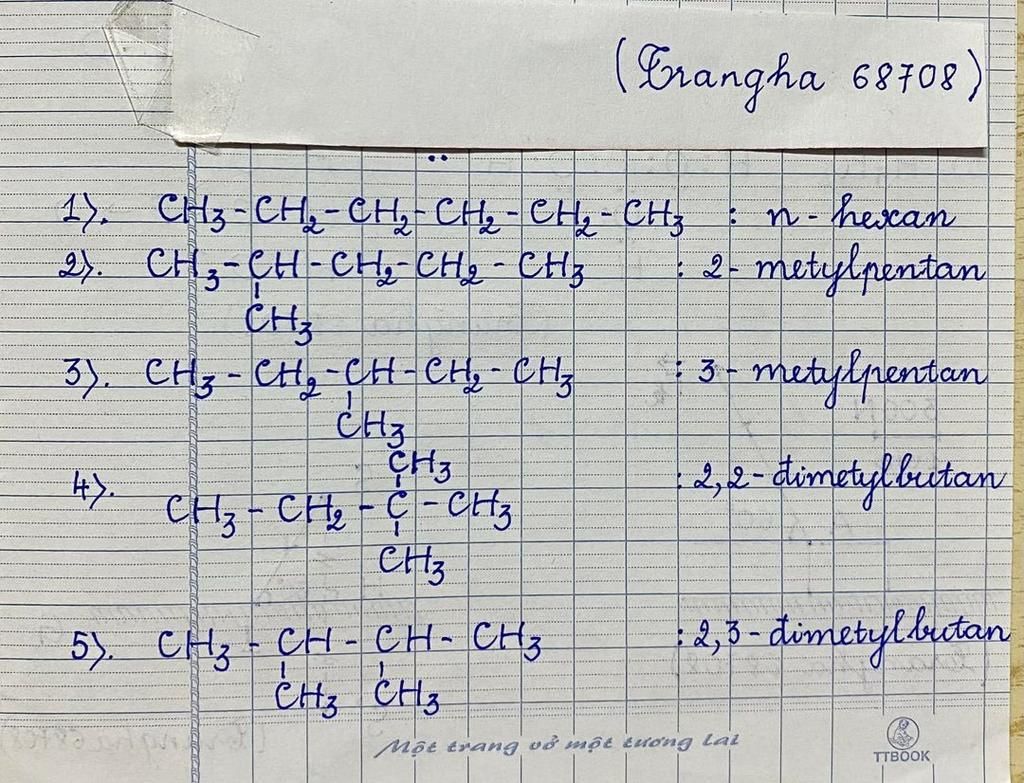 (Trangha 68708)
1). CH3-CH2-CH2-CH2-CH2-CH3 : n-hexan
2). CH3-CH-CH2-CH2-CH3 : 2-metylpentan
CH3
3). CH3-CH2-CH-CH2-CH3 : 3-metylpentan
CH3
CH3
4). CH3-CH2-C-CH3 : 2,2-đimetylbutan
CH3
5). CH3-CH-CH-CH3 : 2,3-đimetylbutan
CH3 CH3
Một trang vở một tương lai
TTBOOK